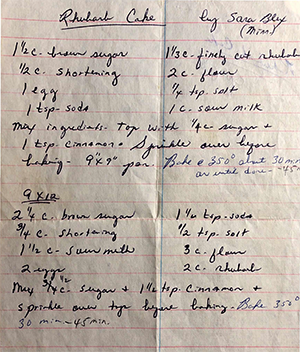 Rhubarb Cake by Sara Bley
(Mim)
1 1/2 c. brown sugar 1 1/3 c. finely cut rhubarb
1/2 c. shortening 2 c. flour
1 egg 1/4 tsp. salt
1 tsp. soda 1 c. sour milk
Mix ingredients. Top with 1/4 c. sugar +
1 tsp. cinnamon. Sprinkle over before
baking - 9"x9" pan. Bake @ 350° about 30 min
or until done - 45m
9 x 12
2 1/4 c. brown sugar 1 1/2 tsp. soda
3/4 c. shortening 1/2 tsp. salt
1 1/2 c. sour milk 3 c. flour
2 eggs 2 c. rhubarb
Mix sugar + 1 1/2 tsp. cinnamon +
sprinkle over top before baking. Bake 350°
30 min - 45 min.